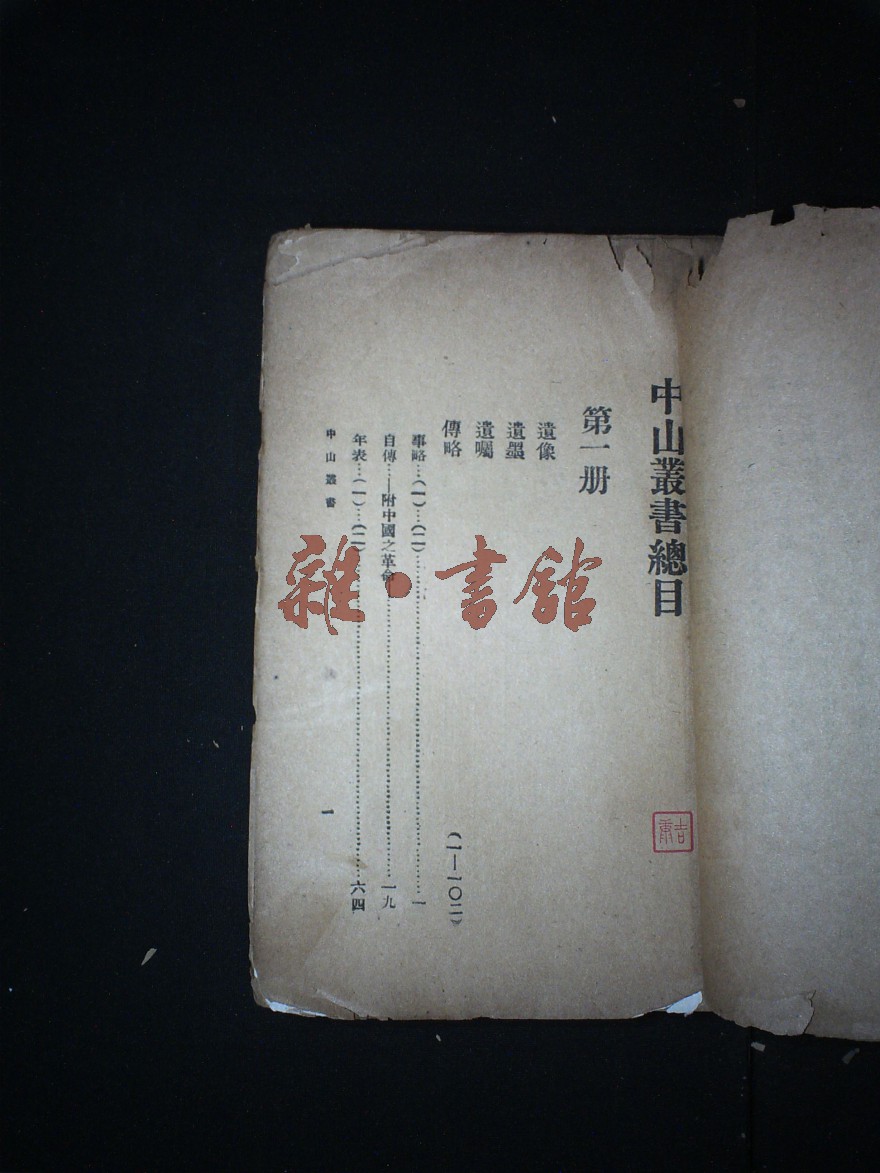 中山叢書總目
第一册
遺像
遺墨
遺囑
傳略……(一—一〇二)
事略…(一)…(二)……一
自傳…——附中國之革命……一九
年表…(一)…(二)……六四
中山叢書 一
雜·書館